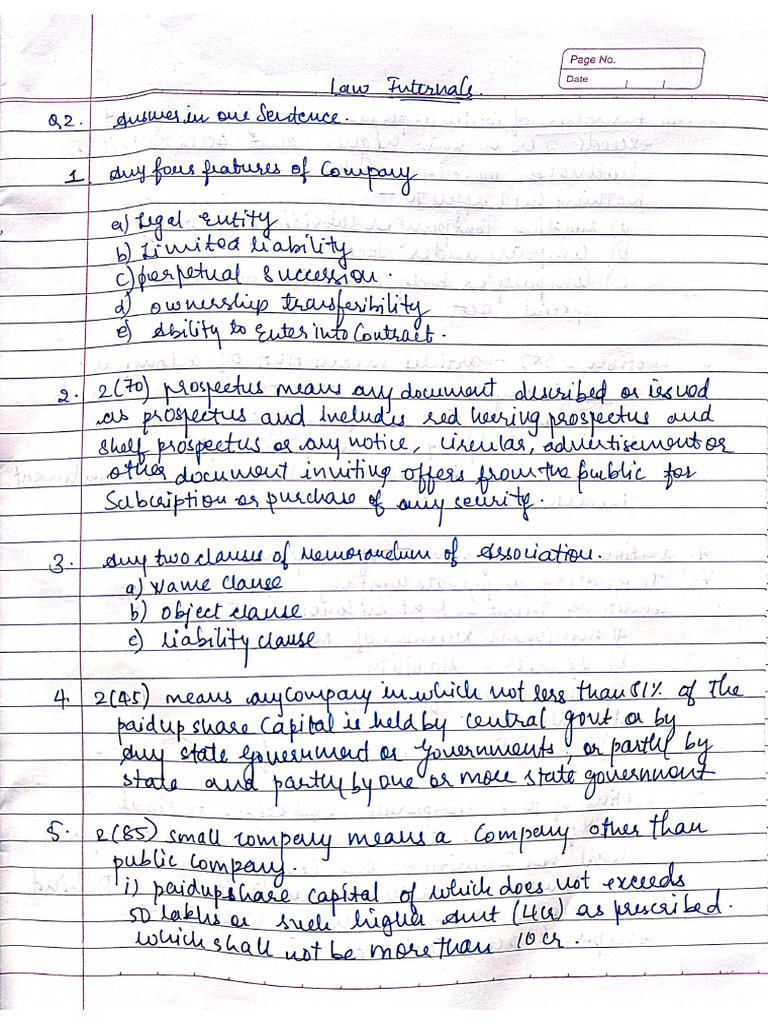 Page No.
Date
Law Internals.
Q2. Answer in one Sentence.
1. Any four features of Company
a) Legal Entity
b) Limited liability
c) perpetual succession.
d) ownership transferibility
e) Ability to Enter into Contract.
2. 2(70) prospectus means any document described or issued
as prospectus and includes red heering prospectus and
shelf prospectus or any notice, circular, advertisement or
other document inviting offers from the public for
Subcription or purchase of any security.
3. Any two clauses of Memorandum of Association.
a) Name clause
b) object clause
c) liability clause
4. 2(45) means any company in which not less than 51% of The
paidup share Capital is held by central govt or by
any state Government or Governments, or partly by
state and partly by one or more state government
5. 2(85) small company means a Company other than
public company.
i) paidup share capital of which does not exceeds
50 lakhs or such higher Amt (4cr) as prescribed.
which shall not be more than 10 cr.